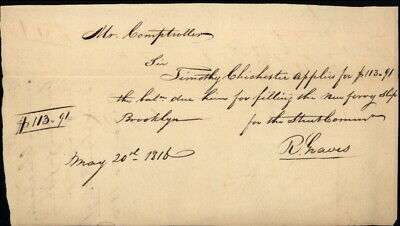 Mr. Comptroller
Sir
Timothy Chichester applies for $113-91
the bal.ce due him for filling the New ferry Slip
$113-91
Brooklyn
for the Street Comm.r
R. Graves
May 20th 1816